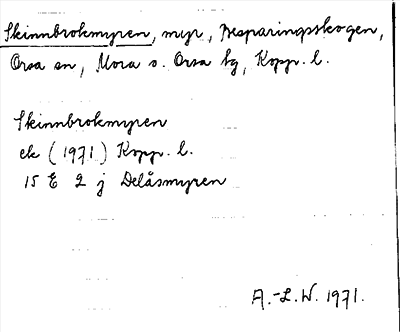 Skinnbrokmyren, myr, Besparingsskogen,
Orsa sn, Mora o. Orsa tg, Kopp. l.
Skinnbrokmyren
ek (1971) Kopp. l.
15 E 2 j Delåsmyren
A.-L.W. 1971.